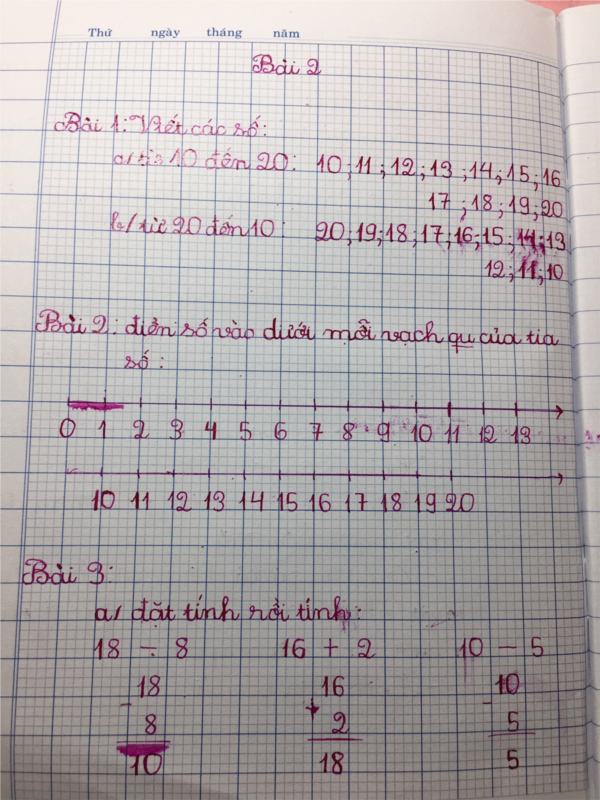 Thứ ngày tháng năm
Bài 2
Bài 1: Viết các số:
a/ từ 10 đến 20: 10;11;12;13;14;15;16
17;18;19;20
b/ từ 20 đến 10: 20;19;18;17;16;15;14;13
12;11;10
Bài 2: điền số vào dưới mỗi vạch qu của tia
số:
0 1 2 3 4 5 6 7 8 9 10 11 12 13
10 11 12 13 14 15 16 17 18 19 20
Bài 3:
a/ đặt tính rồi tính:
18 - 8 16 + 2 10 - 5
18 16 10
- 8 + 2 - 5
10 18 5